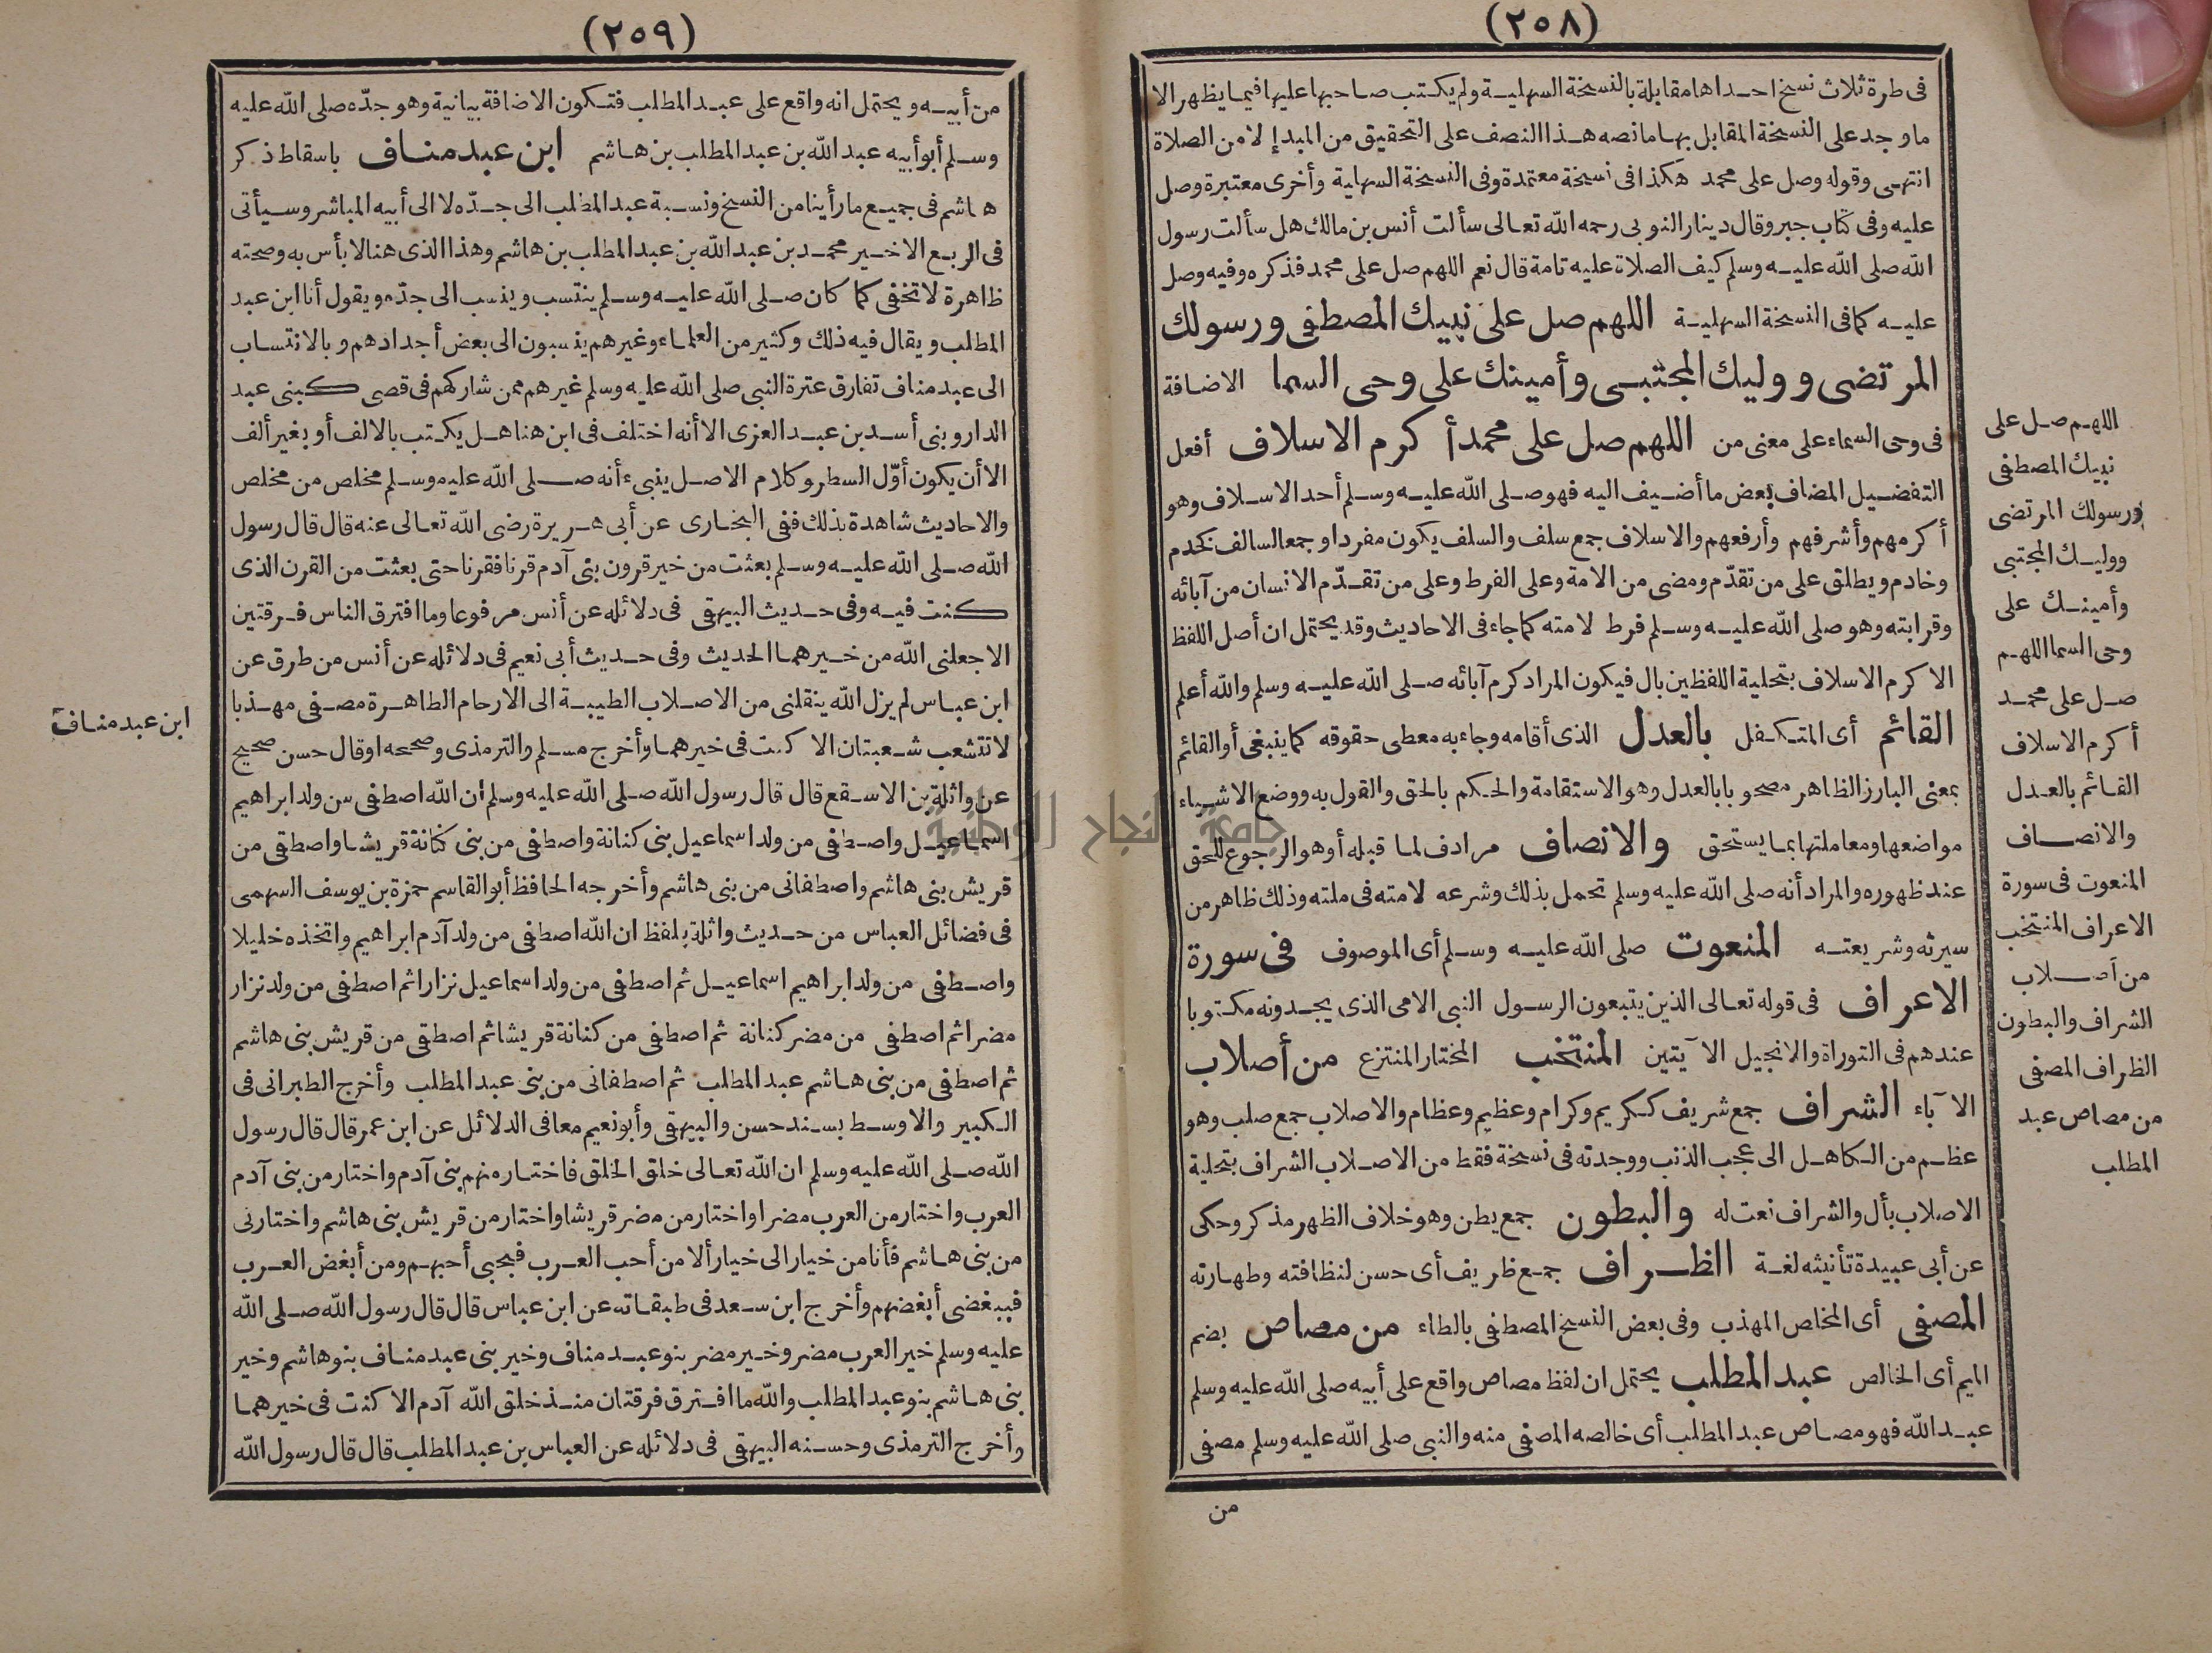 (٢٥٨)
فى طرة ثلاث نسخ احداها مقابلة بالنسخة السهلية ولم يكتب صاحبها عليها فيما يظهر الا
ما وجد على النسخة المقابل بها ما نصه هذا النصف على التحقيق من المبدإ لا من الصلاة
انتهى وقوله وصل على محمد هكذا فى نسخة معتمدة وفى النسخة السهلية وأخرى معتبرة وصل
عليه وفى كتاب جبر وقال دينار النوبى رحمه الله تعالى سألت أنس بن مالك هل سألت رسول
الله صلى الله عليه وسلم كيف الصلاة عليه تامة قال نعم اللهم صل على محمد فذكره وفيه وصل
عليه كما فى النسخة السهلية اللهم صل على نبيك المصطفى ورسولك
المرتضى ووليك المجتبى وأمينك على وحى السما الاضافة
فى وحى السماء على معنى من اللهم صل على محمد أكرم الاسلاف أفعل
التفضيل المضاف بعض ما أضيف اليه فهو صلى الله عليه وسلم أحد الاسلاف وهو
أكرمهم وأشرفهم وأرفعهم والاسلاف جمع سلف والسلف يكون مفردا وجمعا لسالف كخدم
وخادم ويطلق على من تقدّم ومضى من الامة وعلى الفرط وعلى من تقدّم الانسان من آبائه
وقرابته وهو صلى الله عليه وسلم فرط لامته كما جاء فى الاحاديث وقد يحتمل ان أصل اللفظ
الاكرم الاسلاف بتحلية اللفظين بال فيكون المراد كرم آبائه صلى الله عليه وسلم والله أعلم
القائم أى المتكفل بالعدل الذى أقامه وجاء به معطى حقوقه كما ينبغى أو القائم
بمعنى البارز الظاهر مصحوبا بالعدل وهو الاستقامة والحكم بالحق والقول به ووضع الاشياء
مواضعها ومعاملتها بما يستحق والانصاف مرادف لما قبله أو هو الرجوع للحق
عند ظهوره والمراد أنه صلى الله عليه وسلم تحمل بذلك وشرعه لامته فى ملته وذلك ظاهر من
سيرته وشريعته المنعوت صلى الله عليه وسلم أى الموصوف فى سورة
الاعراف فى قوله تعالى الذين يتبعون الرسول النبى الامى الذى يجدونه مكتوبا
عندهم فى التوراة والانجيل الآيتين المنتخب المختار المنتزع من أصلاب
الآباء الشراف جمع شريف ككريم وكرام وعظيم وعظام والاصلاب جمع صلب وهو
عظم من الكاهل الى عجب الذنب ووجدته فى نسخة فقط من الاصلاب الشراف بتحلية
الاصلاب بأل والشراف نعت له والبطون جمع بطن وهو خلاف الظهر مذكر وحكى
عن أبى عبيدة تأنيثه لغة الظراف جمع ظريف أى حسن لنظافته وطهارته
المصفى أى المخلص المهذب وفى بعض النسخ المصطفى بالطاء من مصاص بضم
الميم أى الخالص عبد المطلب يحتمل ان لفظ مصاص واقع على أبيه صلى الله عليه وسلم
عبد الله فهو مصاص عبد المطلب أى خالصه المصفى منه والنبى صلى الله عليه وسلم مصفى
من
اللهم صل على
نبيك المصطفى
ورسولك المرتضى
ووليك المجتبى
وأمينك على
وحى السما اللهم
صل على محمد
أكرم الاسلاف
القائم بالعدل
والانصاف
المنعوت فى سورة
الاعراف المنتخب
من أصلاب
الشراف والبطون
الظراف المصفى
من مصاص عبد
المطلب
(٢٥٩)
من أبيه ويحتمل انه واقع على عبد المطلب فتكون الاضافة بيانية وهو جدّه صلى الله عليه
وسلم أبو أبيه عبد الله بن عبد المطلب بن هاشم ابن عبد مناف باسقاط ذكر
هاشم فى جميع ما رأينا من النسخ ونسبة عبد المطلب الى جدّه لا الى أبيه المباشر وسيأتى
فى الربع الاخير محمد بن عبد الله بن عبد المطلب بن هاشم وهذا الذى هنا لا بأس به وصحته
ظاهرة لا تخفى كما كان صلى الله عليه وسلم ينتسب وينسب الى جدّه ويقول أنا ابن عبد
المطلب ويقال فيه ذلك وكثير من العلماء وغيرهم ينسبون الى بعض أجدادهم وبالانتساب
الى عبد مناف تفارق عترة النبى صلى الله عليه وسلم غيرهم ممن شاركهم فى قصى كبنى عبد
الدار وبنى أسد بن عبد العزى الا أنه اختلف فى ابن هنا هل يكتب بالالف أو بغير ألف
الا أن يكون أوّل السطر وكلام الاصل ينبىء أنه صلى الله عليه وسلم مخلص من مخلص
والاحاديث شاهدة بذلك ففى البخارى عن أبى هريرة رضى الله تعالى عنه قال قال رسول
الله صلى الله عليه وسلم بعثت من خير قرون بنى آدم قرنا فقرنا حتى بعثت من القرن الذى
كنت فيه وفى حديث البيهقى فى دلائله عن أنس مرفوعا وما افترق الناس فرقتين
الا جعلنى الله من خيرهما الحديث وفى حديث أبى نعيم فى دلائله عن أنس من طرق عن
ابن عباس لم يزل الله ينقلنى من الاصلاب الطيبة الى الارحام الطاهرة مصفى مهذبا
لا تتشعب شعبتان الا كنت فى خيرهما وأخرج مسلم والترمذى وصححه اوقال حسن صحيح
عن واثلة بن الاسقع قال قال رسول الله صلى الله عليه وسلم ان الله اصطفى من ولد ابراهيم
اسماعيل واصطفى من ولد اسماعيل بنى كنانة واصطفى من بنى كنانة قريشا واصطفى من
قريش بنى هاشم واصطفانى من بنى هاشم وأخرجه الحافظ أبو القاسم حمزة بن يوسف السهمى
فى فضائل العباس من حديث واثلة بلفظ ان الله اصطفى من ولد آدم ابراهيم واتخذه خليلا
واصطفى من ولد ابراهيم اسماعيل ثم اصطفى من ولد اسماعيل نزارا ثم اصطفى من ولد نزار
مضر اثم اصطفى من مضر كنانة ثم اصطفى من كنانة قريشا ثم اصطفى من قريش بنى هاشم
ثم اصطفى من بنى هاشم عبد المطلب ثم اصطفانى من بنى عبد المطلب وأخرج الطبرانى فى
الكبير والاوسط بسند حسن والبيهقى وأبو نعيم معا فى الدلائل عن ابن عمر قال قال رسول
الله صلى الله عليه وسلم ان الله تعالى خلق الخلق فاختار منهم بنى آدم واختار من بنى آدم
العرب واختار من العرب مضرا واختار من مضر قريشا واختار من قريش بنى هاشم واختارنى
من بنى هاشم فأنا من خيار الى خيار ألا من أحب العرب فبحبى أحبهم ومن أبغض العرب
فببغضى أبغضهم وأخرج ابن سعد فى طبقاته عن ابن عباس قال قال رسول الله صلى الله
عليه وسلم خير العرب مضر وخير مضر بنو عبد مناف وخير بنى عبد مناف بنو هاشم وخير
بنى هاشم بنو عبد المطلب والله ما افترق فرقتان منذ خلق الله آدم الا كنت فى خيرهما
وأخرج الترمذى وحسنه البيهقى فى دلائله عن العباس بن عبد المطلب قال قال رسول الله
ابن عبد مناف
جامعة النجاح الوطنية